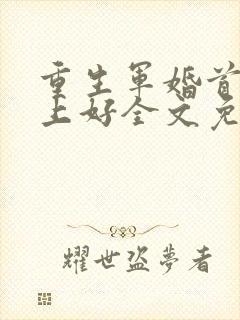 重生军婚首
上好全文免
耀世盗夢者